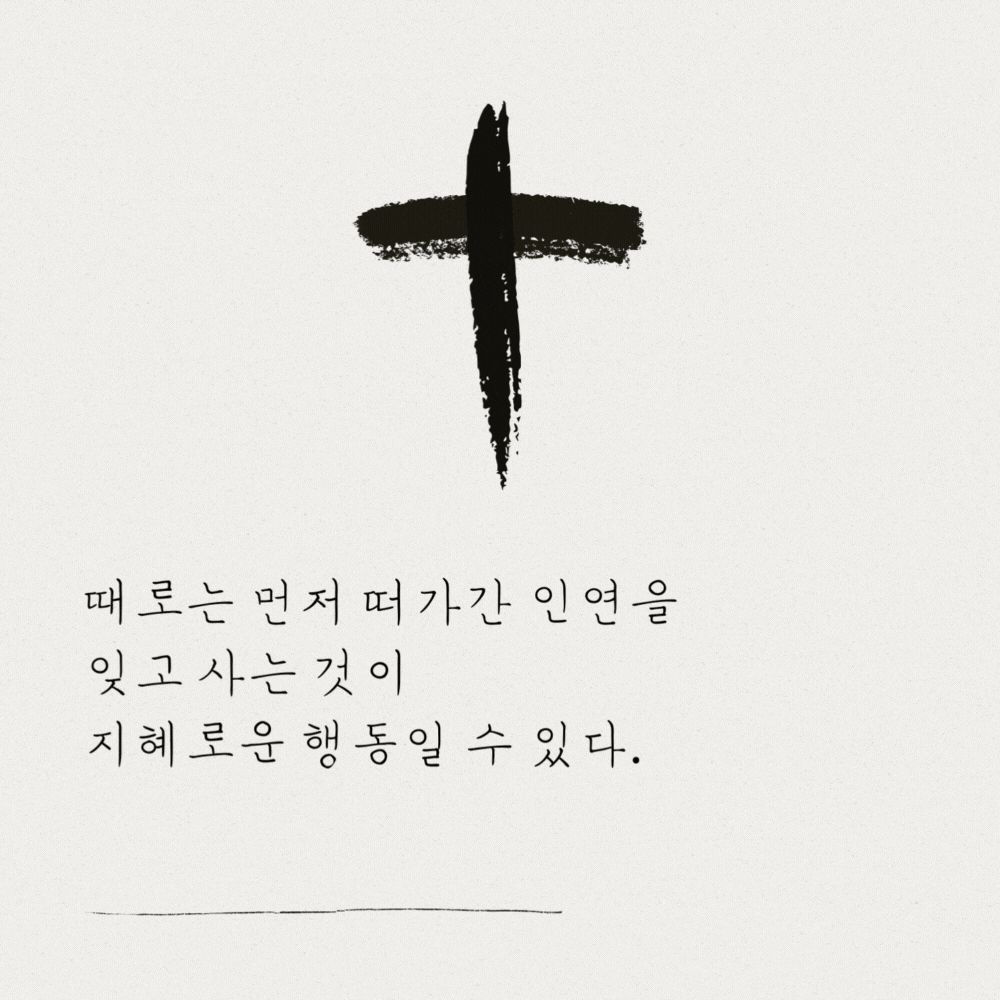 때로는 먼저 떠가간 인연을
잊고 사는 것이
지혜로운 행동일 수 있다.